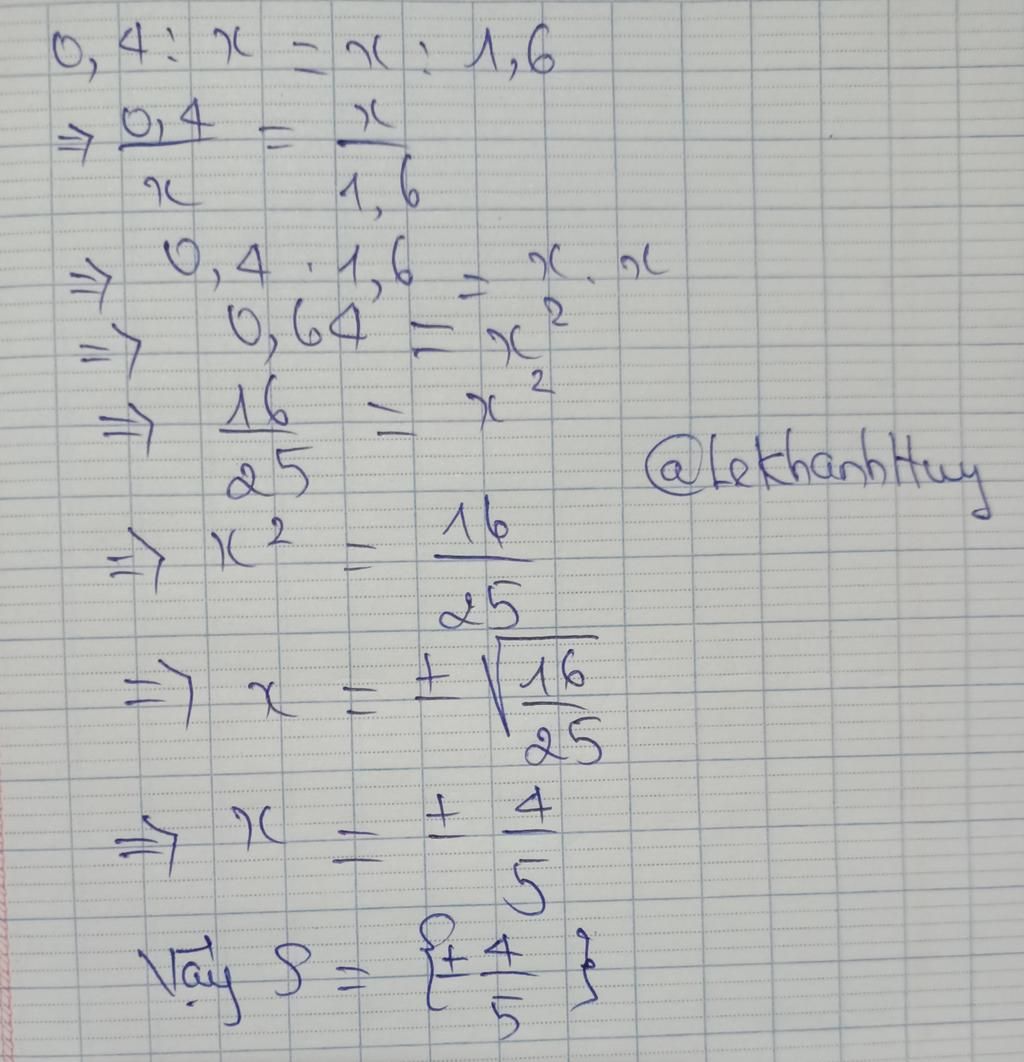 0,4 : x = x : 1,6
⇒ 0,4/x = x/1,6
⇒ 0,4 . 1,6 = x . x
⇒ 0,64 = x²
⇒ 16/25 = x²
@LeKhanhHuy
⇒ x² = 16/25
⇒ x = ± √(16/25)
⇒ x = ± 4/5
Vậy S = {± 4/5}